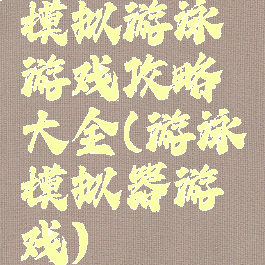 模拟游泳
游戏攻略
大全(游泳
模拟器游
戏)